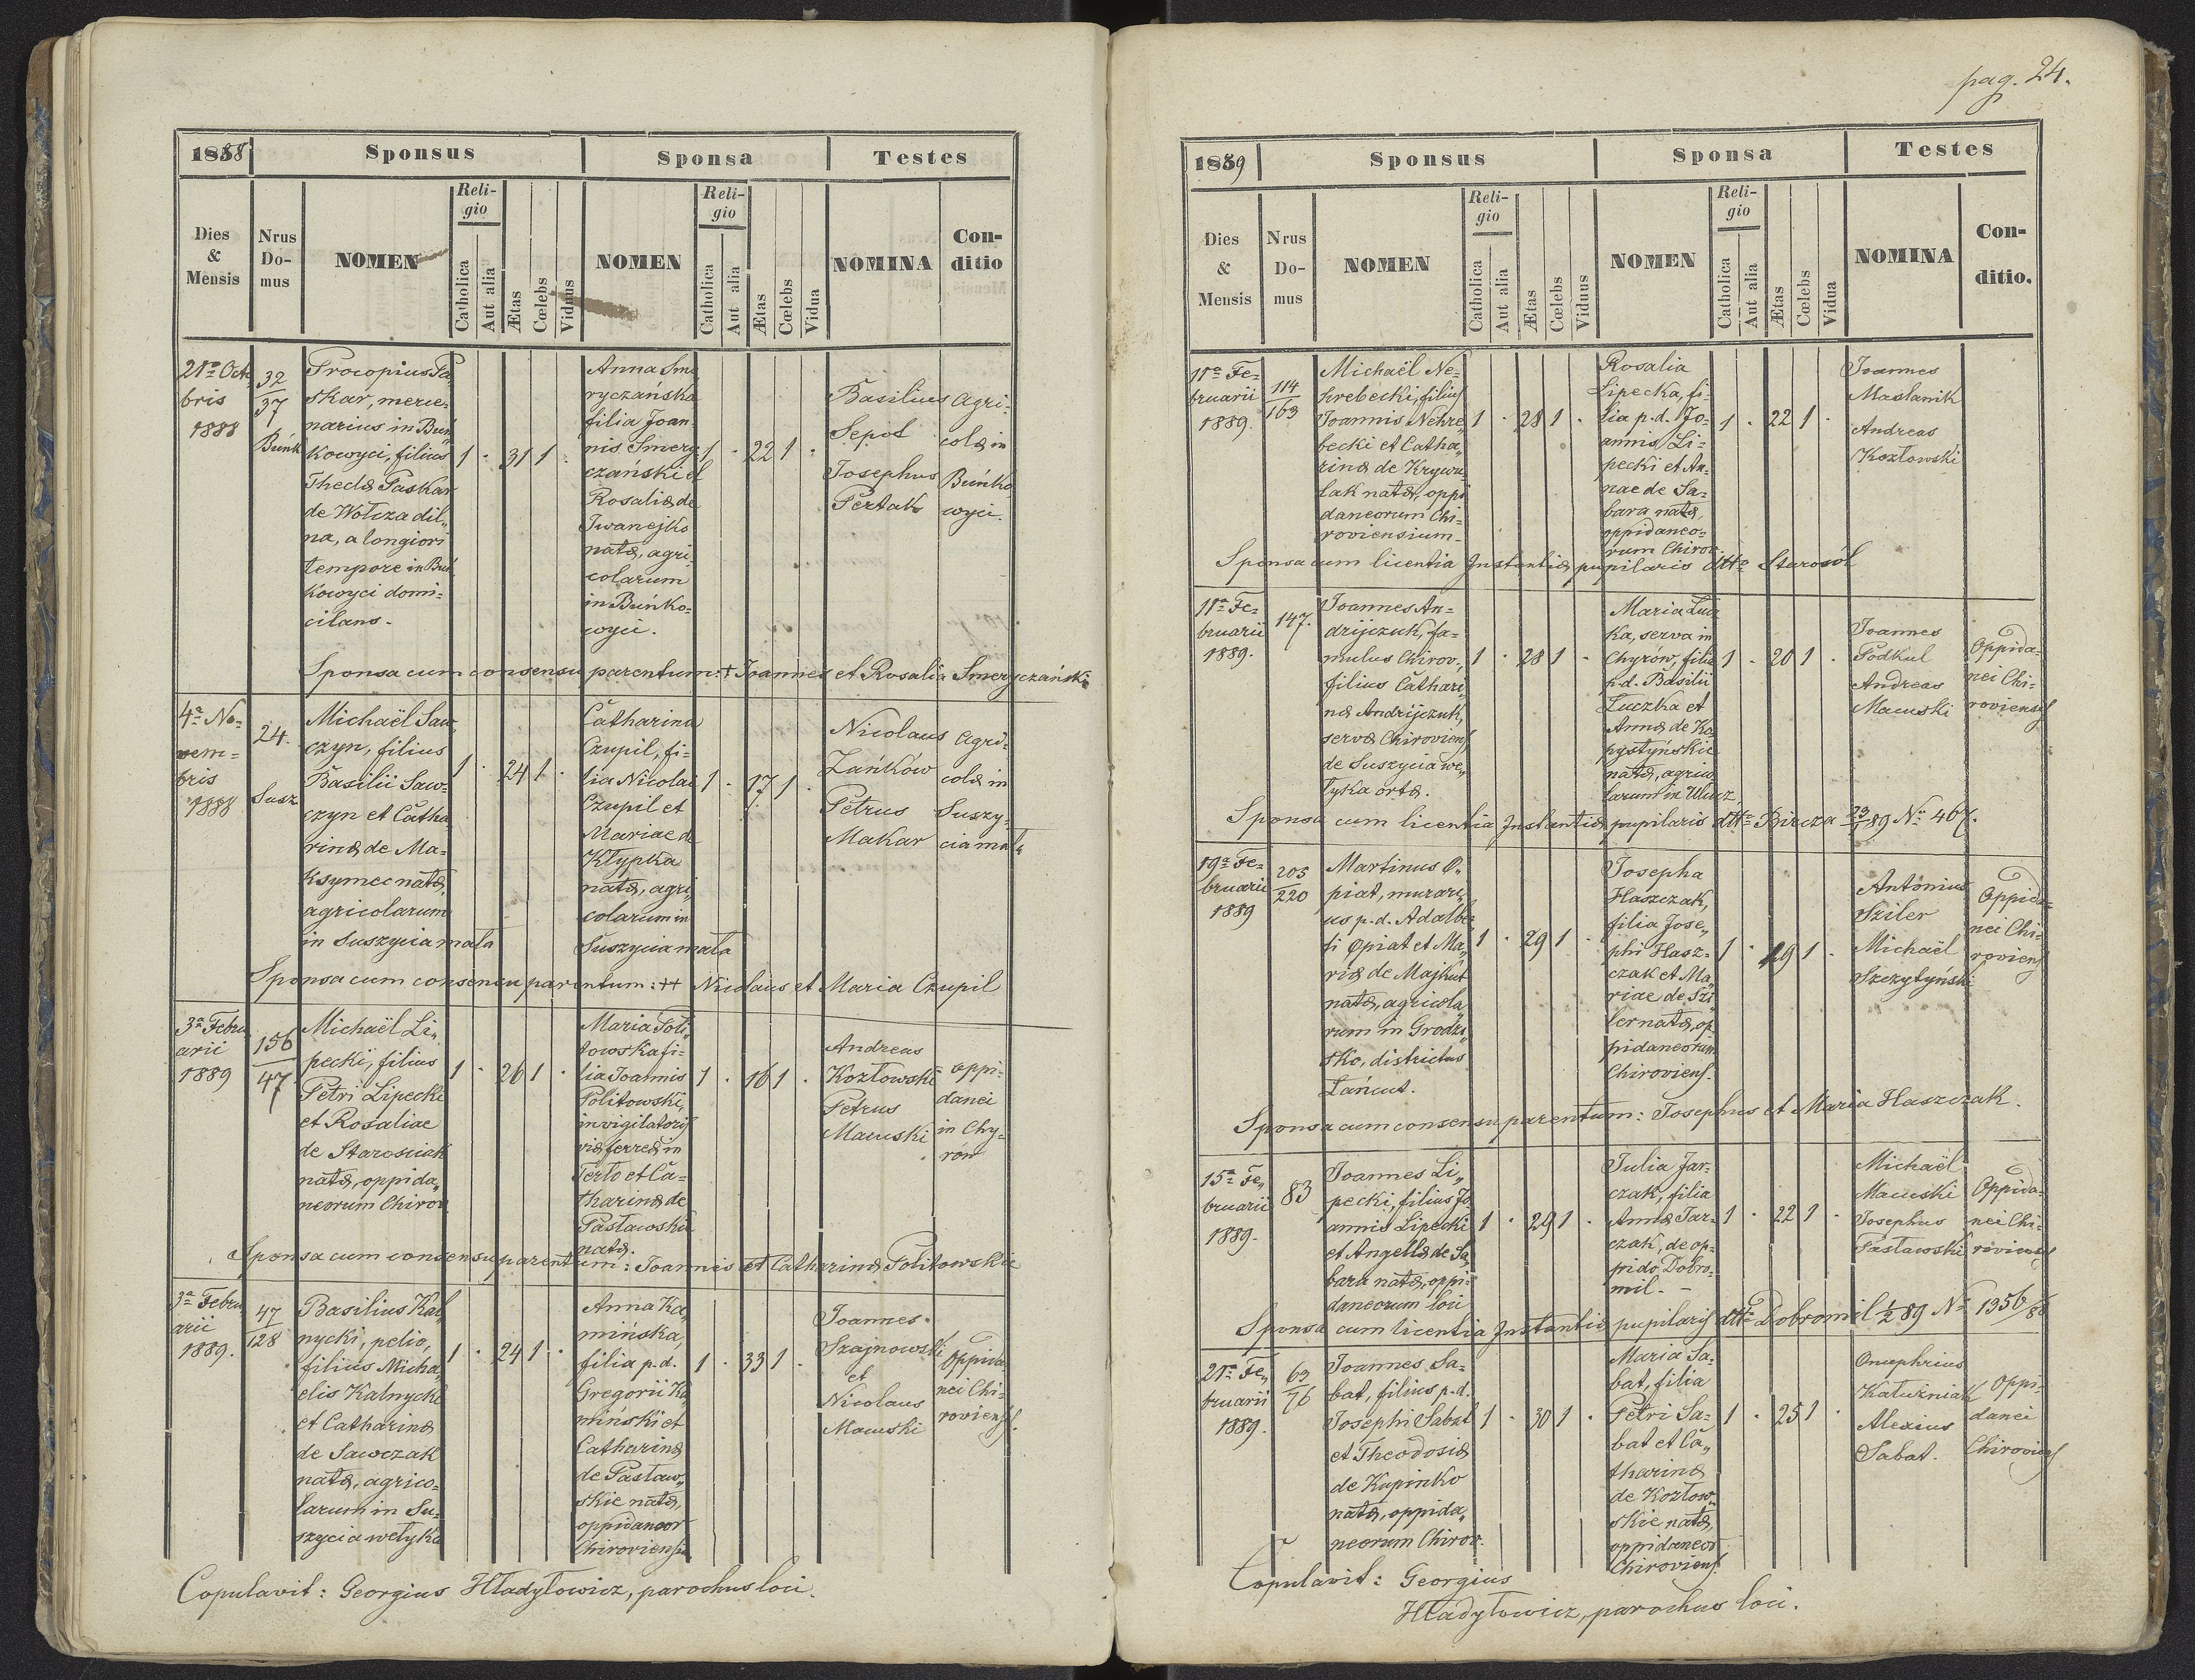 pag. 24.
1888
Sponsus
Sponsa
Testes
Dies & Mensis
Nrus Do- mus
NOMEN
Reli- gio
Catholica
Aut alia
Ætas
Cœlebs
Viduus
NOMEN
Reli- gio
Catholica
Aut alia
Ætas
Cœlebs
Vidua
NOMINA
Con- ditio
21a Octo
bris
1888
32
37
Buńk
Procopius Pa
skar, merce-
narius in Buń
kowyci, filius
Theclæ Paskar
de Wołcza dil„
na, a longiori
tempore in Buń
kowyci domi-
cilans.
1 · 31 1 ·
Anna Sme
ryczańska
filia Joan
nis Smery
czański et
Rosaliæ de
Iwanejko
natæ, agri
colarum
in Buńko-
wyci.
1 · 22 1 ·
Basilius
Sepot
Josephus
Pertak
agri-
colæ in
Buńko
wyci.
Sponsa cum consensu parentum: + Joannes et Rosalia Smeryczański
4a No-
vem-
bris
1888
24.
Susz
Michaël Saw
czyn, filius
Basilii Saw-
czyn et Catha
rinæ de Ma-
ksymec natæ,
agricolarum
in Suszycia mała
1 · 24 1 ·
Catharina
Czupil, fi-
lia Nicolai
Czupil et
Mariae de
Kłypka
natæ, agri„
colarum in
Suszycia mała
1 · 17 1 ·
Nicolaus
Zańków
Petrus
Makar
agri-
colæ in
Suszy-
cia mała
Sponsa cum consensu parentum: ++ Nicolaus et Maria Czupil
3a Febru
arii
1889
156
47
Michaël Li„
pecki, filius
Petri Lipecki
et Rosaliae
de Starosciak
natæ, oppida„
neorum Chirov
1 · 26 1 ·
Maria Poli„
towska fi-
lia Joannis
Politowski,
invigilatoris
viæ ferreæ in
Terło et Ca-
tharinæ de
Pasławskie
natæ.
1 · 16 1 ·
Andreas
Kozłowski
Petrus
Macuski
oppi-
danei
in Chy-
rów
Sponsa cum consensu parentum: Joannis et Catharinæ Politowskie
3a Febru
arii
1889.
47
128
Basilius Kal
nycki, pelio,
filius Micha„
elis Kalnycki
et Catharinæ
de Sawczak
natæ, agrico-
larum in Su-
szycia wełyka
1 · 24 1 ·
Anna Ka„
mińska,
filia p.d.
Gregorii Ka
miński et
Catharinæ
de Pasław„
skie natæ,
oppidaneor
Chiroviensis
1 · 33 1 ·
Joannes
Szajnowski
et
Nicolaus
Macuski
Oppida
nei Chi-
roviens.
Copulavit: Georgius Hładyłowicz, parochus loci.
1889
Sponsus
Sponsa
Testes
Dies & Mensis
Nrus Do- mus
NOMEN
Reli- gio
Catholica
Aut alia
Ætas
Cœlebs
Viduus
NOMEN
Reli- gio
Catholica
Aut alia
Ætas
Cœlebs
Vidua
NOMINA
Con- ditio.
11a Fe-
bruarii
1889.
114
163
Michaël Ne-
hrebecki, filius
Joannis Nehre„
becki et Catha„
rinæ de Krywu
lak natæ, oppi
daneorum Chi-
roviensium.
1 · 28 1 ·
Rosalia
Lipecka, fi-
lia p.d. Jo-
annis Li-
pecki et An-
nae de Sa-
bara natæ,
oppidaneo-
rum Chirov.
1 · 22 1 ·
Joannes
Maslanik
Andreas
Kozłowski
Sponsa cum licentia Instantiæ pupilaris dtto Starosól
11a Fe-
bruarii
1889.
147.
Joannes An-
drijczuk, fa-
mulus Chirov.,
filius Cathari„
næ Andrijczuk,
servæ Chiroviens
de Suszycia we„
łyka ortæ.
1 · 28 1 ·
Maria Łucz
ka, serva in
Chyrów, filia
p.d. Basilii
Łuczka et
Annæ de Ko
pystyńskie
natæ, agrico
larum in Ulucz
1 · 20 1 ·
Joannes
Podkul
Andreas
Macuski
Oppida-
nei Chi-
roviens
Sponsa cum licentia Instantiæ pupilaris dtto Bircza 23/1 89 No 467.
19a Fe-
bruarii
1889
205
220
Martinus O„
piat, murari„
us p.d. Adalber
ti Opiat et Ma„
riæ de Majkut
natæ, agricola„
rum in Grodzi„
sko, districtus
Łańcut.
1 · 29 1 ·
Josepha
Haszczak,
filia Jose„
phi Hasz-
czak et Ma„
riae de Szi
ler natæ, op
pidaneorum
Chiroviens.
1 · 19 1 ·
Antonius
Sziler
Michaël
Szczytyński
Oppida-
nei Chi-
roviens
Sponsa cum consensu parentum: Josephus et Maria Haszczak.
15a Fe„
bruarii
1889.
83
Joannes Li„
pecki, filius Jo
annis Lipecki
et Angellæ de Sa
bara natæ, oppi-
daneorum loci
1 · 29 1 ·
Julia Jar-
czak, filia
Annæ Jar-
czak, de op-
pido Dobro-
mil. -
1 · 22 1 ·
Michaël
Macuski
Josephus
Pasławski
Oppida-
nei Chi-
roviens
Sponsa cum licentia Instantiæ pupilaris dtto Dobromil 1/2 89 No 1356/88
21a Fe„
bruarii
1889.
63
76
Joannes Sa-
bat, filius p.d.
Josephi Sabat
et Theodosiæ
de Kupinko
natæ, oppida„
neorum Chirov.
1 · 30 1 ·
Maria Sa-
bat, filia
Petri Sa-
bat et Ca„
tharinæ
de Kozłow„
skie natæ,
oppidaneor
Chiroviens.
1 · 25 1 ·
Onuphrius
Kałużniak
Alexius
Sabat.
Oppi-
danei
Chiroviens
Copulavit: Georgius
Hładyłowicz, parochus loci.